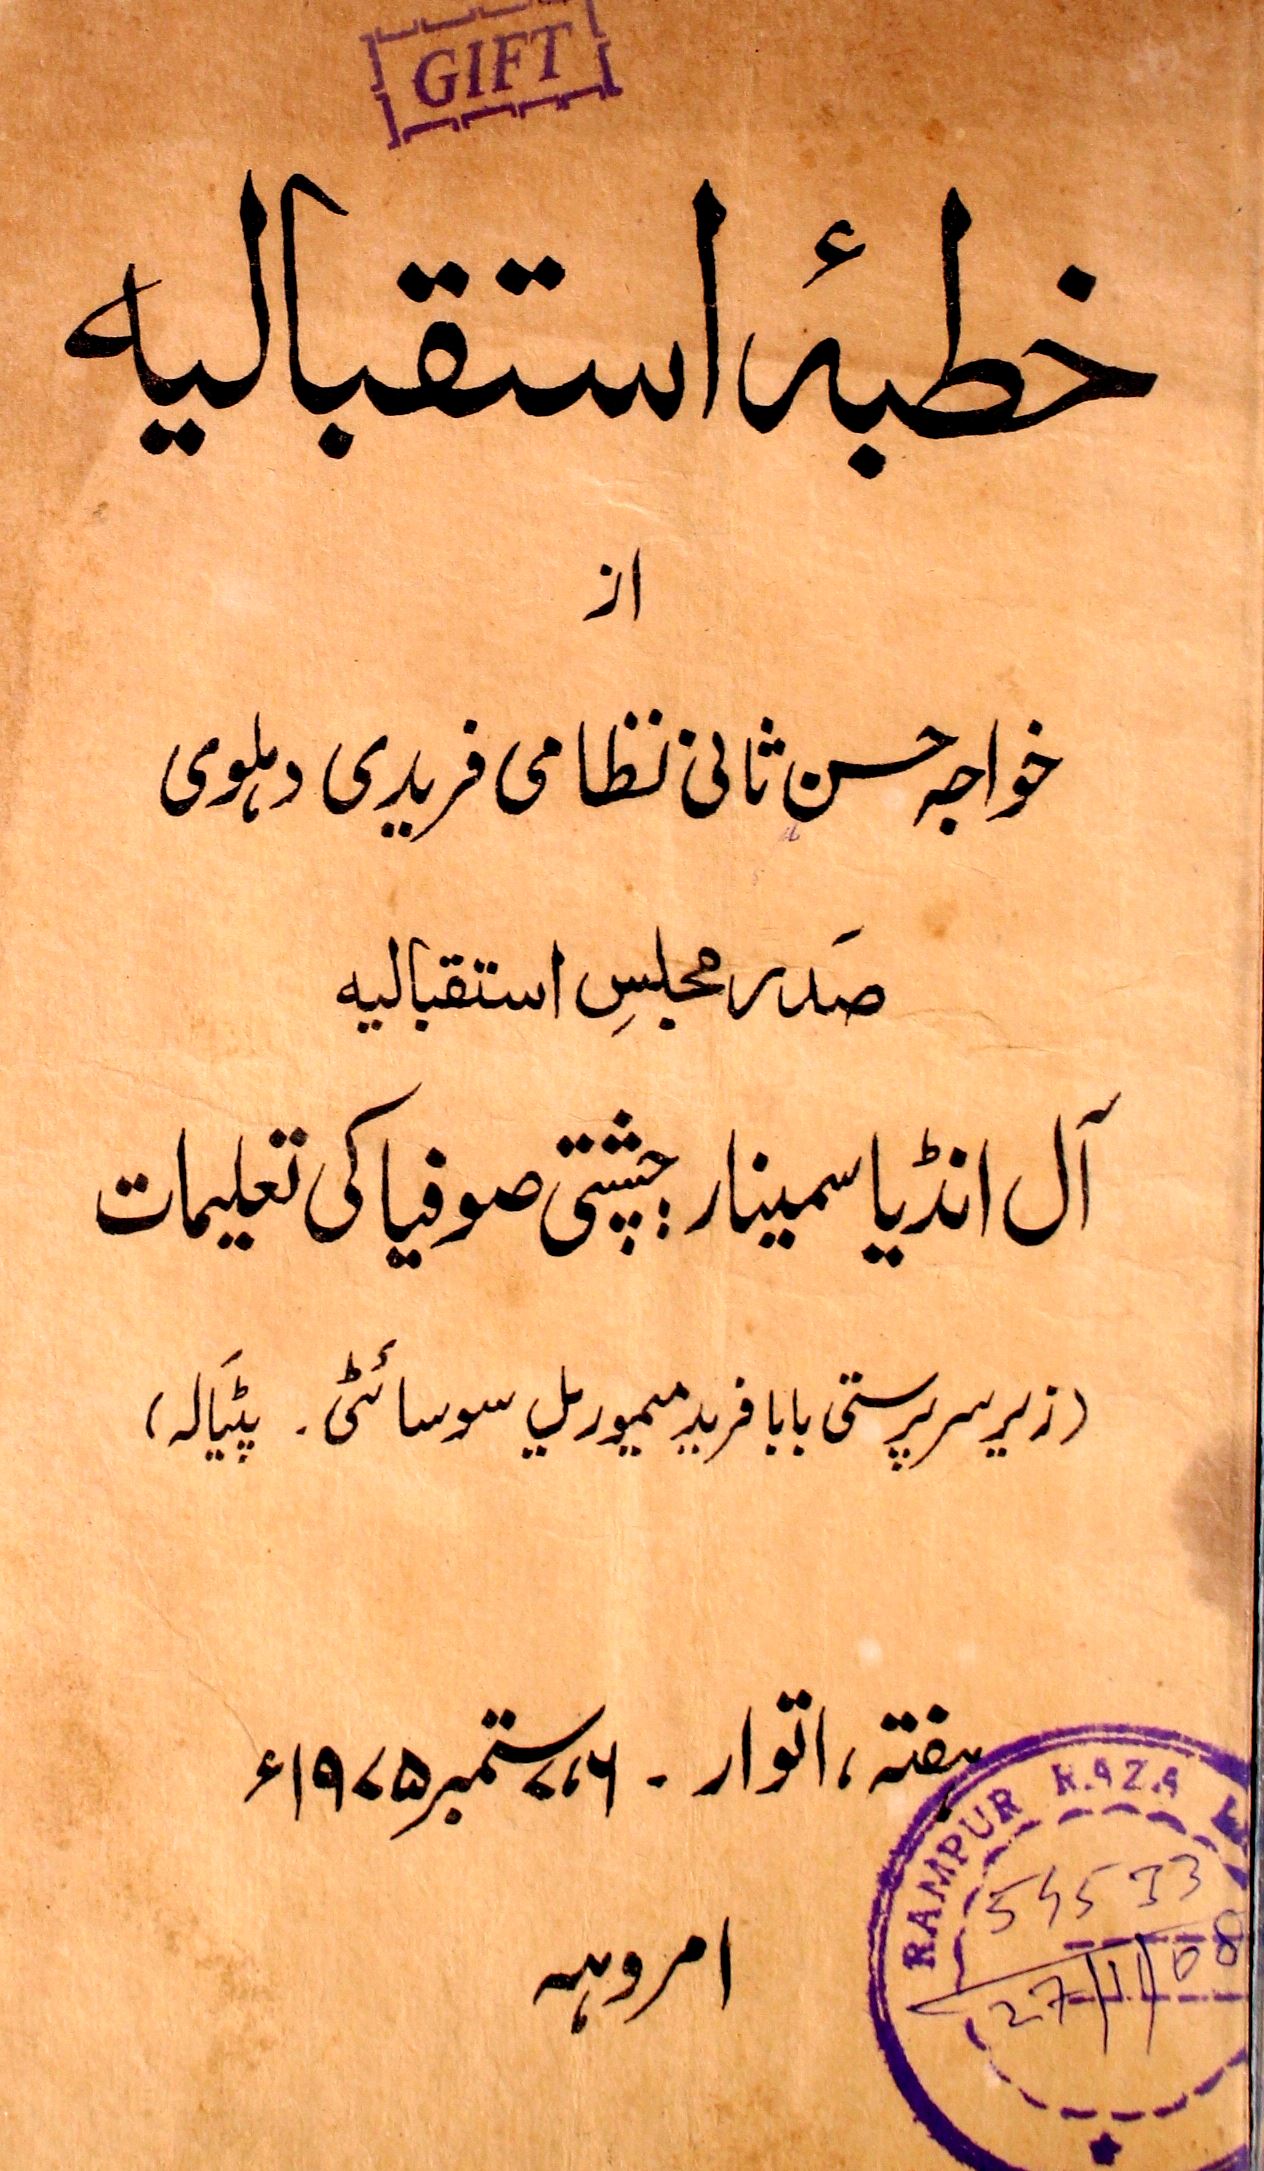 GIFT
خطبۂ استقبالیہ
از
خواجہ حسن ثانی نظامی فریدی دہلوی
صَدر مجلسِ استقبالیہ
آل انڈیا سمینار: چشتی صوفیا کی تعلیمات
(زیر سرپرستی بابا فرید میموریل سوسائٹی۔ پٹیالہ)
ہفتہ، اتوار - ۶،۷ ستمبر ۱۹۷۵ء
امروہہ
RAMPUR RAZA
27/11/08